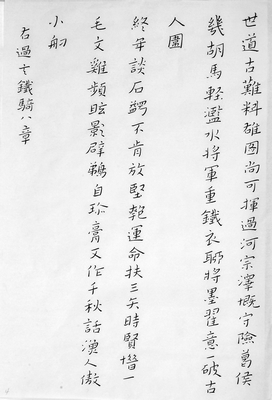 世道古難料雄图尚可揮過河宗澤慨守險葛侯
幾胡馬輕濫水將軍重鐵衣聊將墨翟意一破古
人圍
終年談石鍔不肯放堅匏運命扶三矢時賢暫一
毛文雞頻眩影辟鵜自珍膏又作千秋話漢人傲
小舠
右過七鐵騎八章